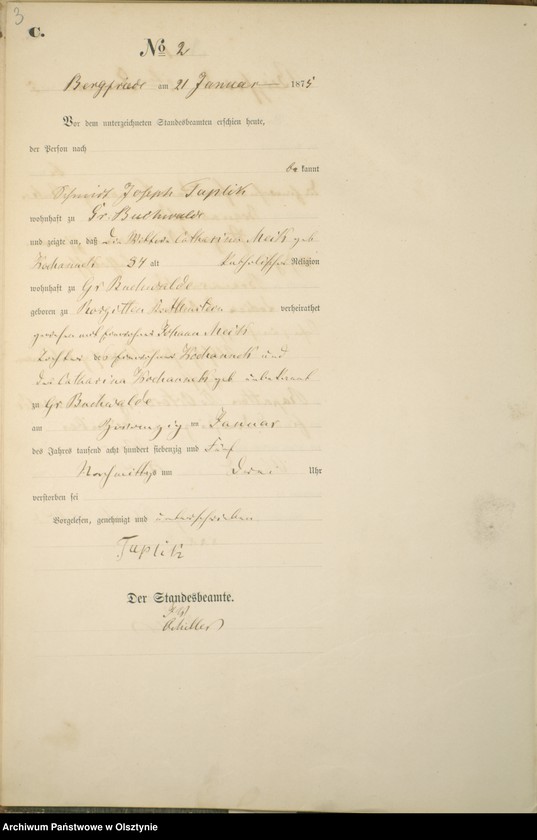 3
C.
No 2
Bergfriede am 21 Januar 1875
Vor dem unterzeichneten Standesbeamten erschien heute,
der Person nach
be kannt
Schmidt Joseph Taplik
wohnhaft zu Gr Buchwalde
und zeigte an, daß die Wittwe Catharina Meik geb
Kochanneck 54 alt katholischer Religion
wohnhaft zu Gr Buchwalde
geboren zu verheirathet
gewesen mit Johann Meik
Tochter des Kochanneck und
der Catharina Kochanneck geb unbekannt
zu Gr Buchwalde
am zwanzig ten Januar
des Jahres tausend acht hundert siebenzig und fünf
Nachmittags um drei Uhr
verstorben sei
Vorgelesen, genehmigt und unterschrieben
Taplik
Der Standesbeamte.
Schiller
Archiwum Państwowe w Olsztynie